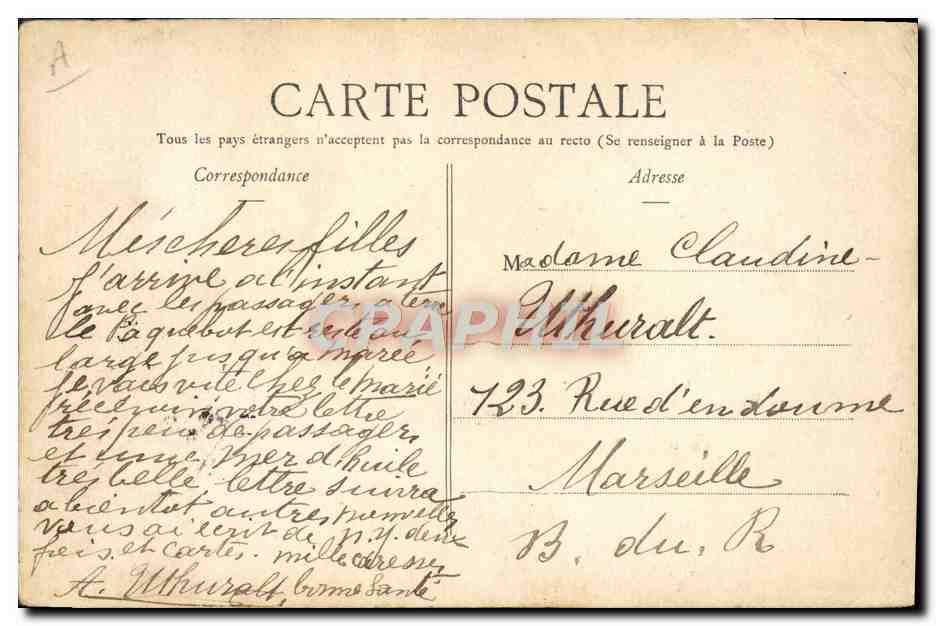 A
CARTE POSTALE
Tous les pays étrangers n'acceptent pas la correspondance au recto (Se renseigner à la Poste)
Correspondance
Mes cheres filles
J'arrive a l'instant
avec les passagers a terre
le Paquebot est reste au
large jusqu'a mareé
je vais vite chez le marié
recevoir votre lettre
tres peu de passagers
et une mer d'huile
tres belle lettre suivra
a bientot autres nouvelles
vous ai ecrit de N.Y. deux
fois et cartes. mille caresses
A. Uthuralt, bonne Santé
Adresse
Madame Claudine
Uthuralt.
123. Rue d'endoume
Marseille
B. du. R
CPAPHIL